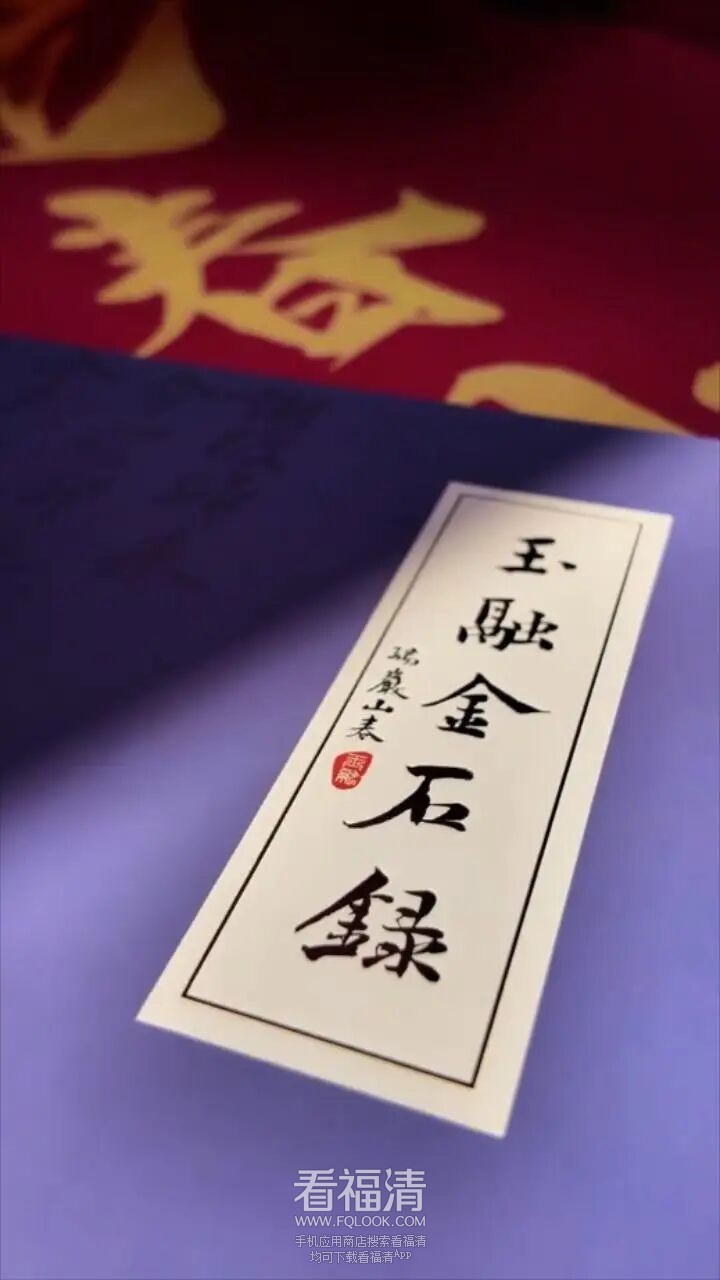 春
玉融金石録
瑞巖山春
玉融
看福清
WWW.FQLOOK.COM
手机应用商店搜索看福清
均可下载看福清App